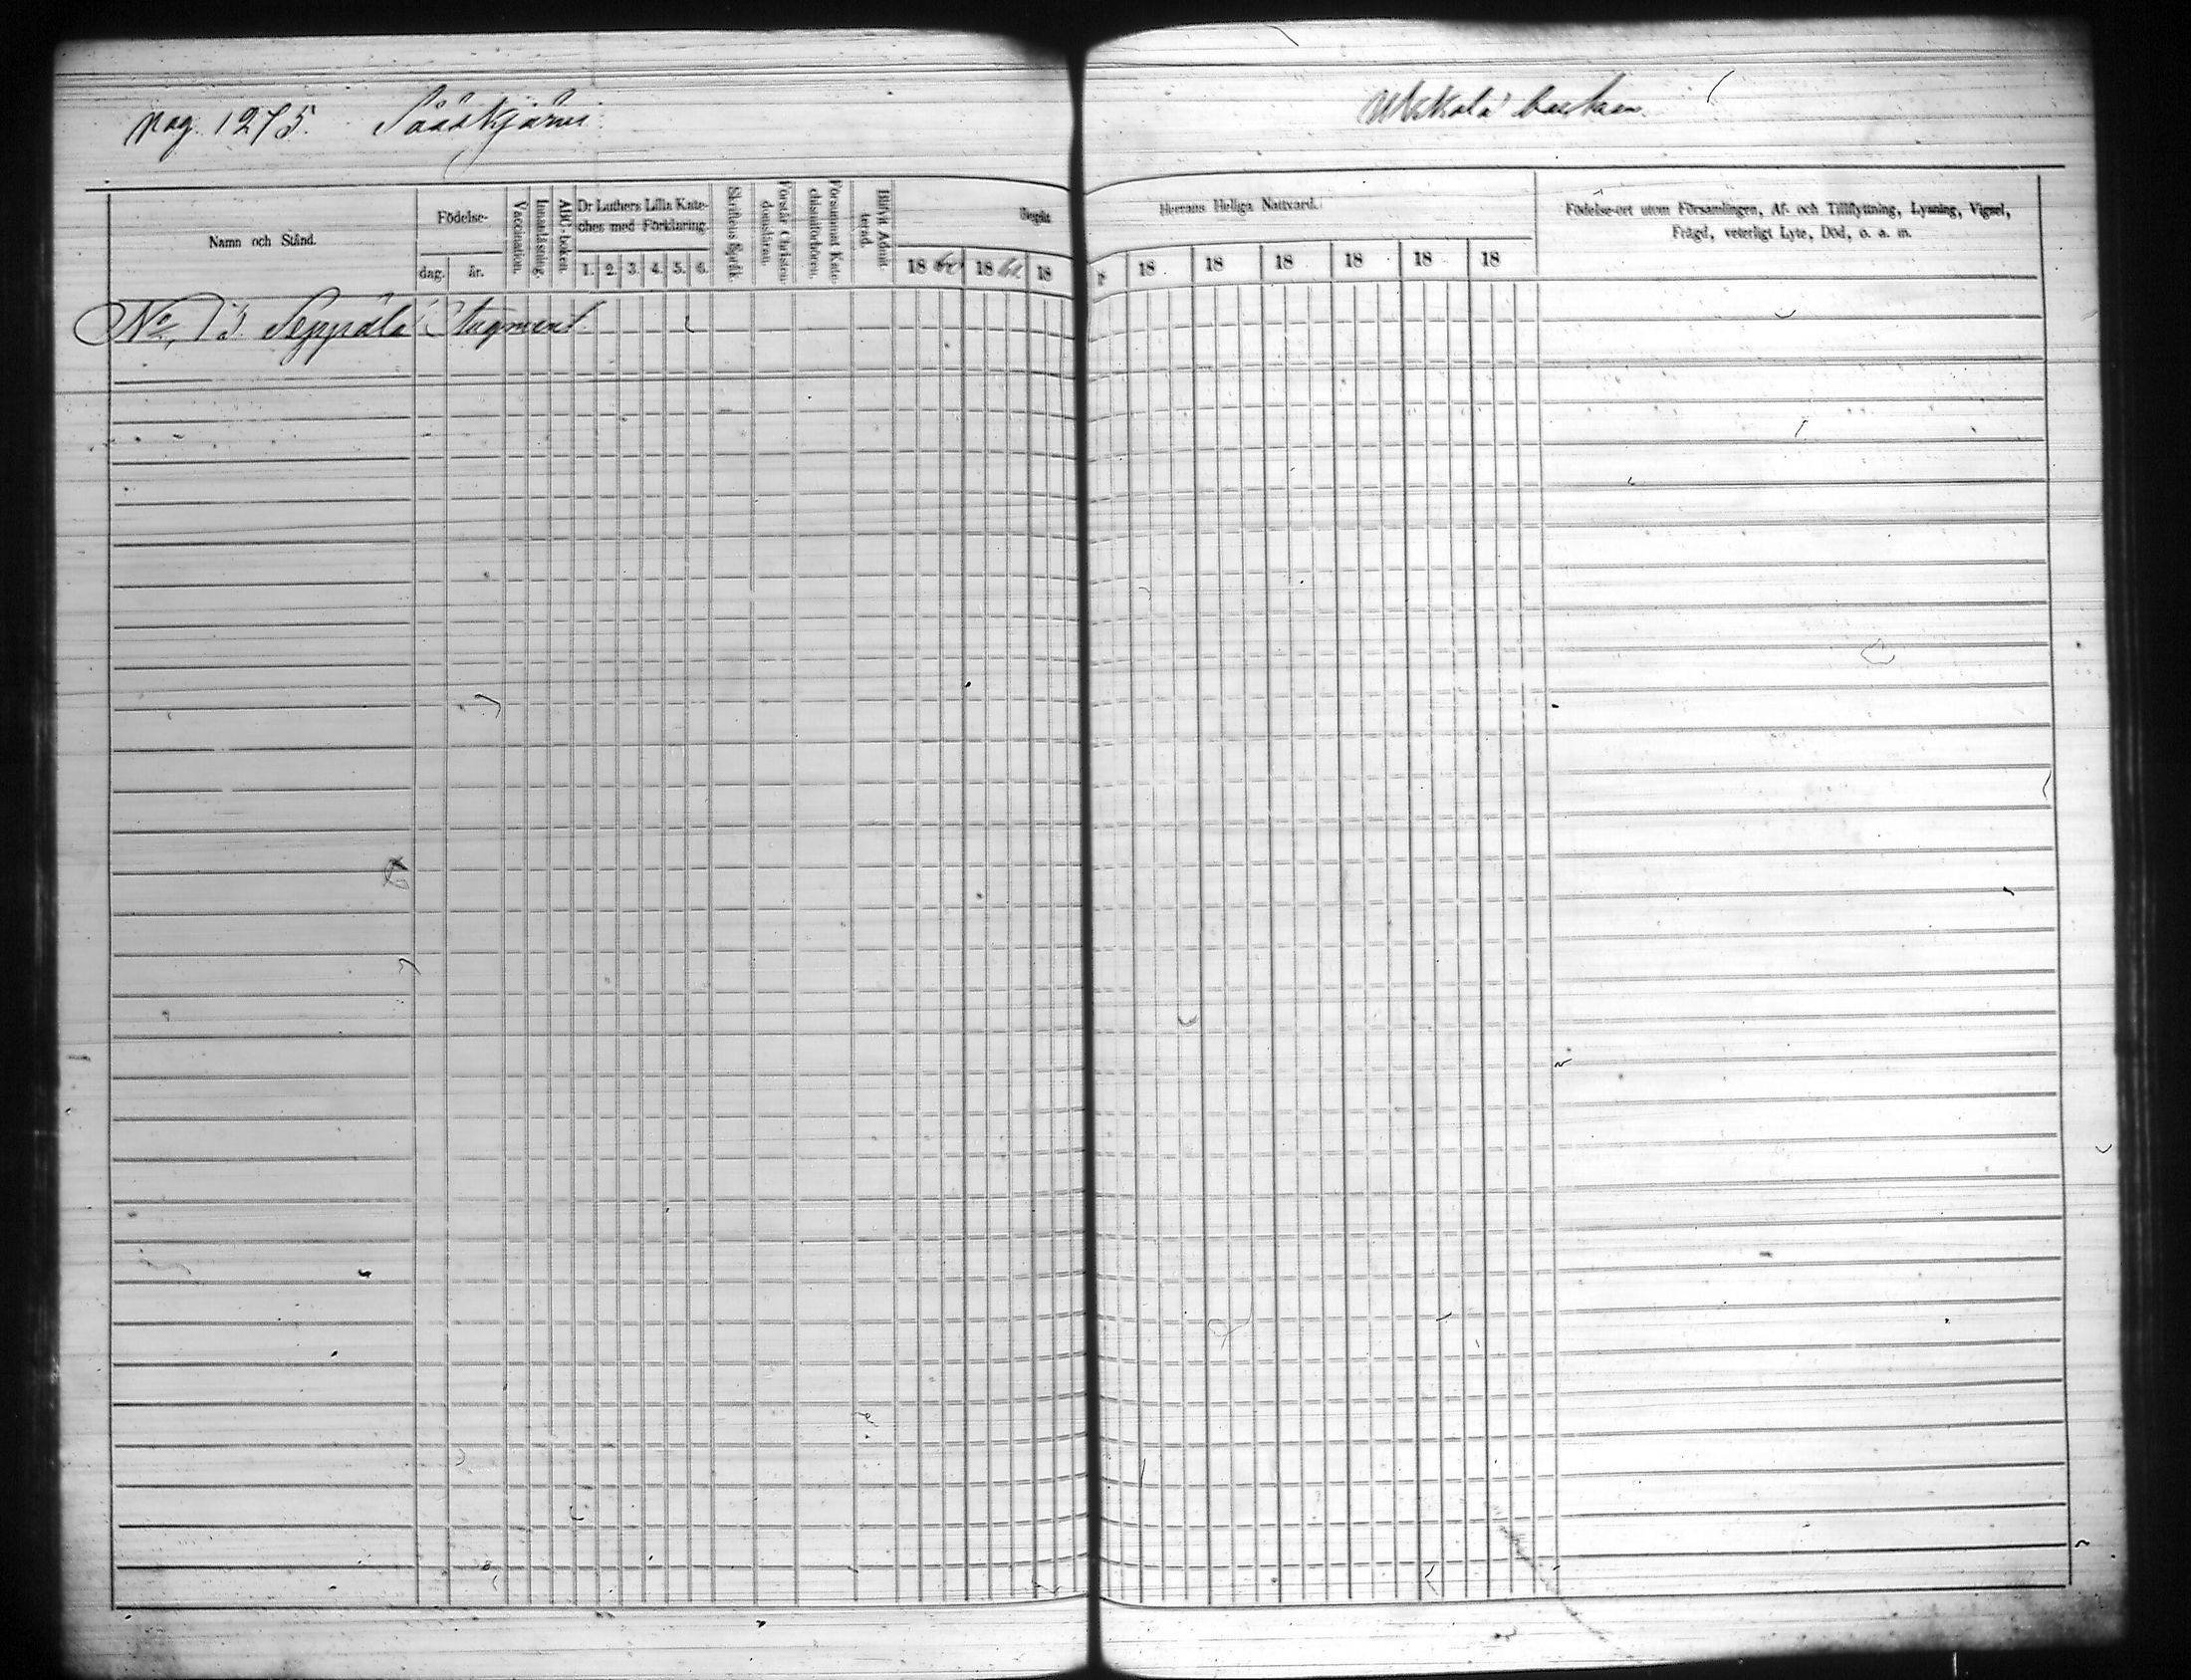 pag. 1275. Sääskjärvi.
Namn och Stånd.
Födelse-
dag. år.
Vaccination.
Innanläsning.
ABC-boken.
Dr Luthers Lilla Kate-
ches med Förklaring.
1. 2. 3. 4. 5. 6.
Skriftens Språk.
Förstår Christen-
domsläran.
Försummat Kate-
chismiförhören.
Blifvit Admit-
terad.
Begått
18 60 18 18
Herrans Heliga Nattvard.
18 18 18 18 18 18
Födelse-ort utom Församlingen, Af- och Tillflyttning, Lysning, Vigsel,
Frägd, veterligt Lyte, Död, o. a. m.
No, 13 Seppälä Augment.